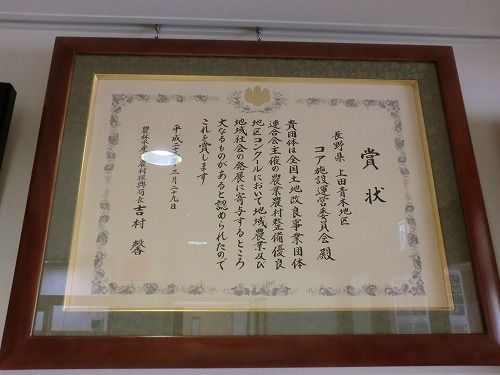 賞状
長野県 上田青木地区
コア施設運営委員会殿
貴団体は全国土地改良事業団体
連合会主催の農業農村整備優良
地区コンクールにおいて地域農業及び
地域社会の発展に寄与するところ
大なるものがあると認められたので
これを賞します
平成二十 三月二十九日
農林水産 農村振興局長 吉村 馨